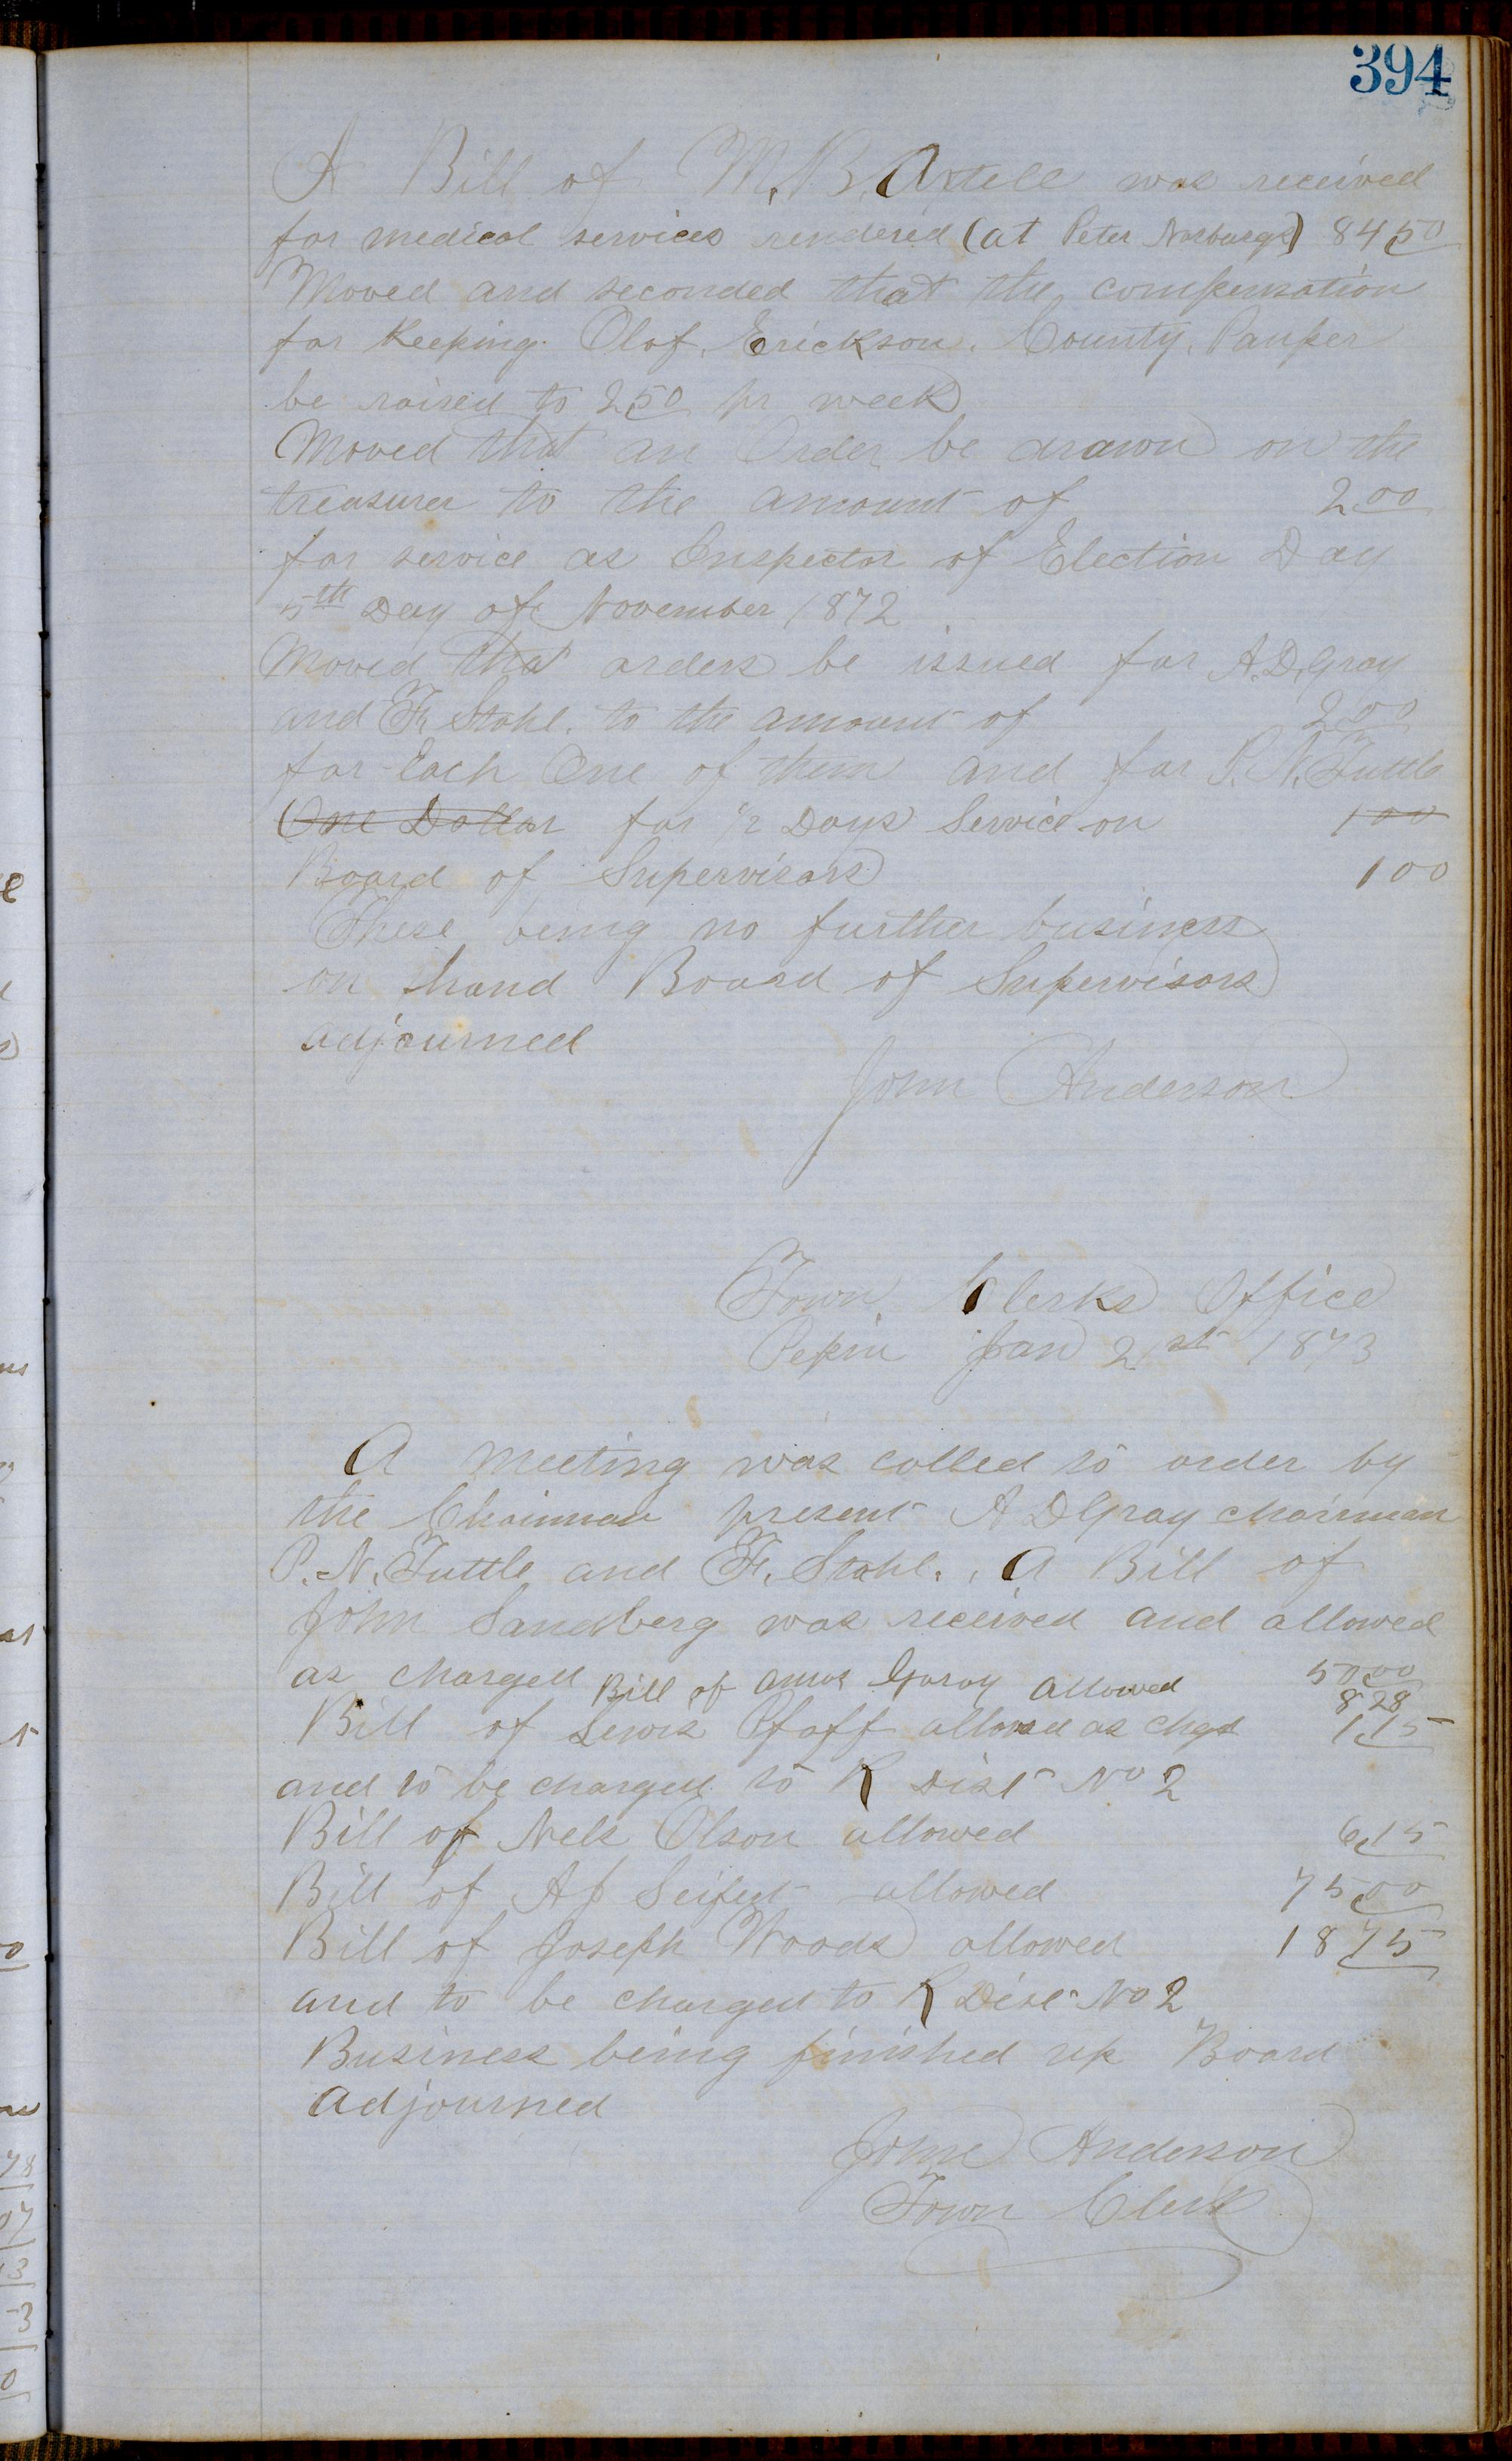 394
A Bill of M. B. Axtell was received
for medical services rendered (at Peter Norburgs) 84,50
Moved and seconded that the compensation
for Keeping Olof. Erickson. County, Pauper
be raised to 2,50 pr week
Moved that an Order be drawn on the
treasurer to the amount of 2 00
for service as Inspector of Election Day
5th Day of November 1872
Moved that orders be issued for A. D. Gray
and F. Stahl. to the amount of 2 00
for Each One of them and for P. N. Tuttle
One Dollar for 1/2 Days Service on 1 00
Board of Supervisors 1 00
These being no further business
on hand Board of Supervisors
adjourned
John Anderson
Town Clerks Office
Pepin Jan 21st 1873
A meeting was called to order by
the Chairman present A D Gray chairman
P. N. Tuttle and F. Stahl. A Bill of
John Sandberg was received and allowed
as charged 50,00
Bill of Amos Gray allowed 8 28
Bill of Lewis Pfaff allowed as chgd 1,15
and to be charged to R Dist No 2
Bill of Nels Olson allowed 6,15
Bill of A J Seifert allowed 75,00
Bill of Joseph Woods allowed 18 75
and to be charged to R Dist No 2
Business being finished up Board
adjourned
John Anderson
Town Clerk